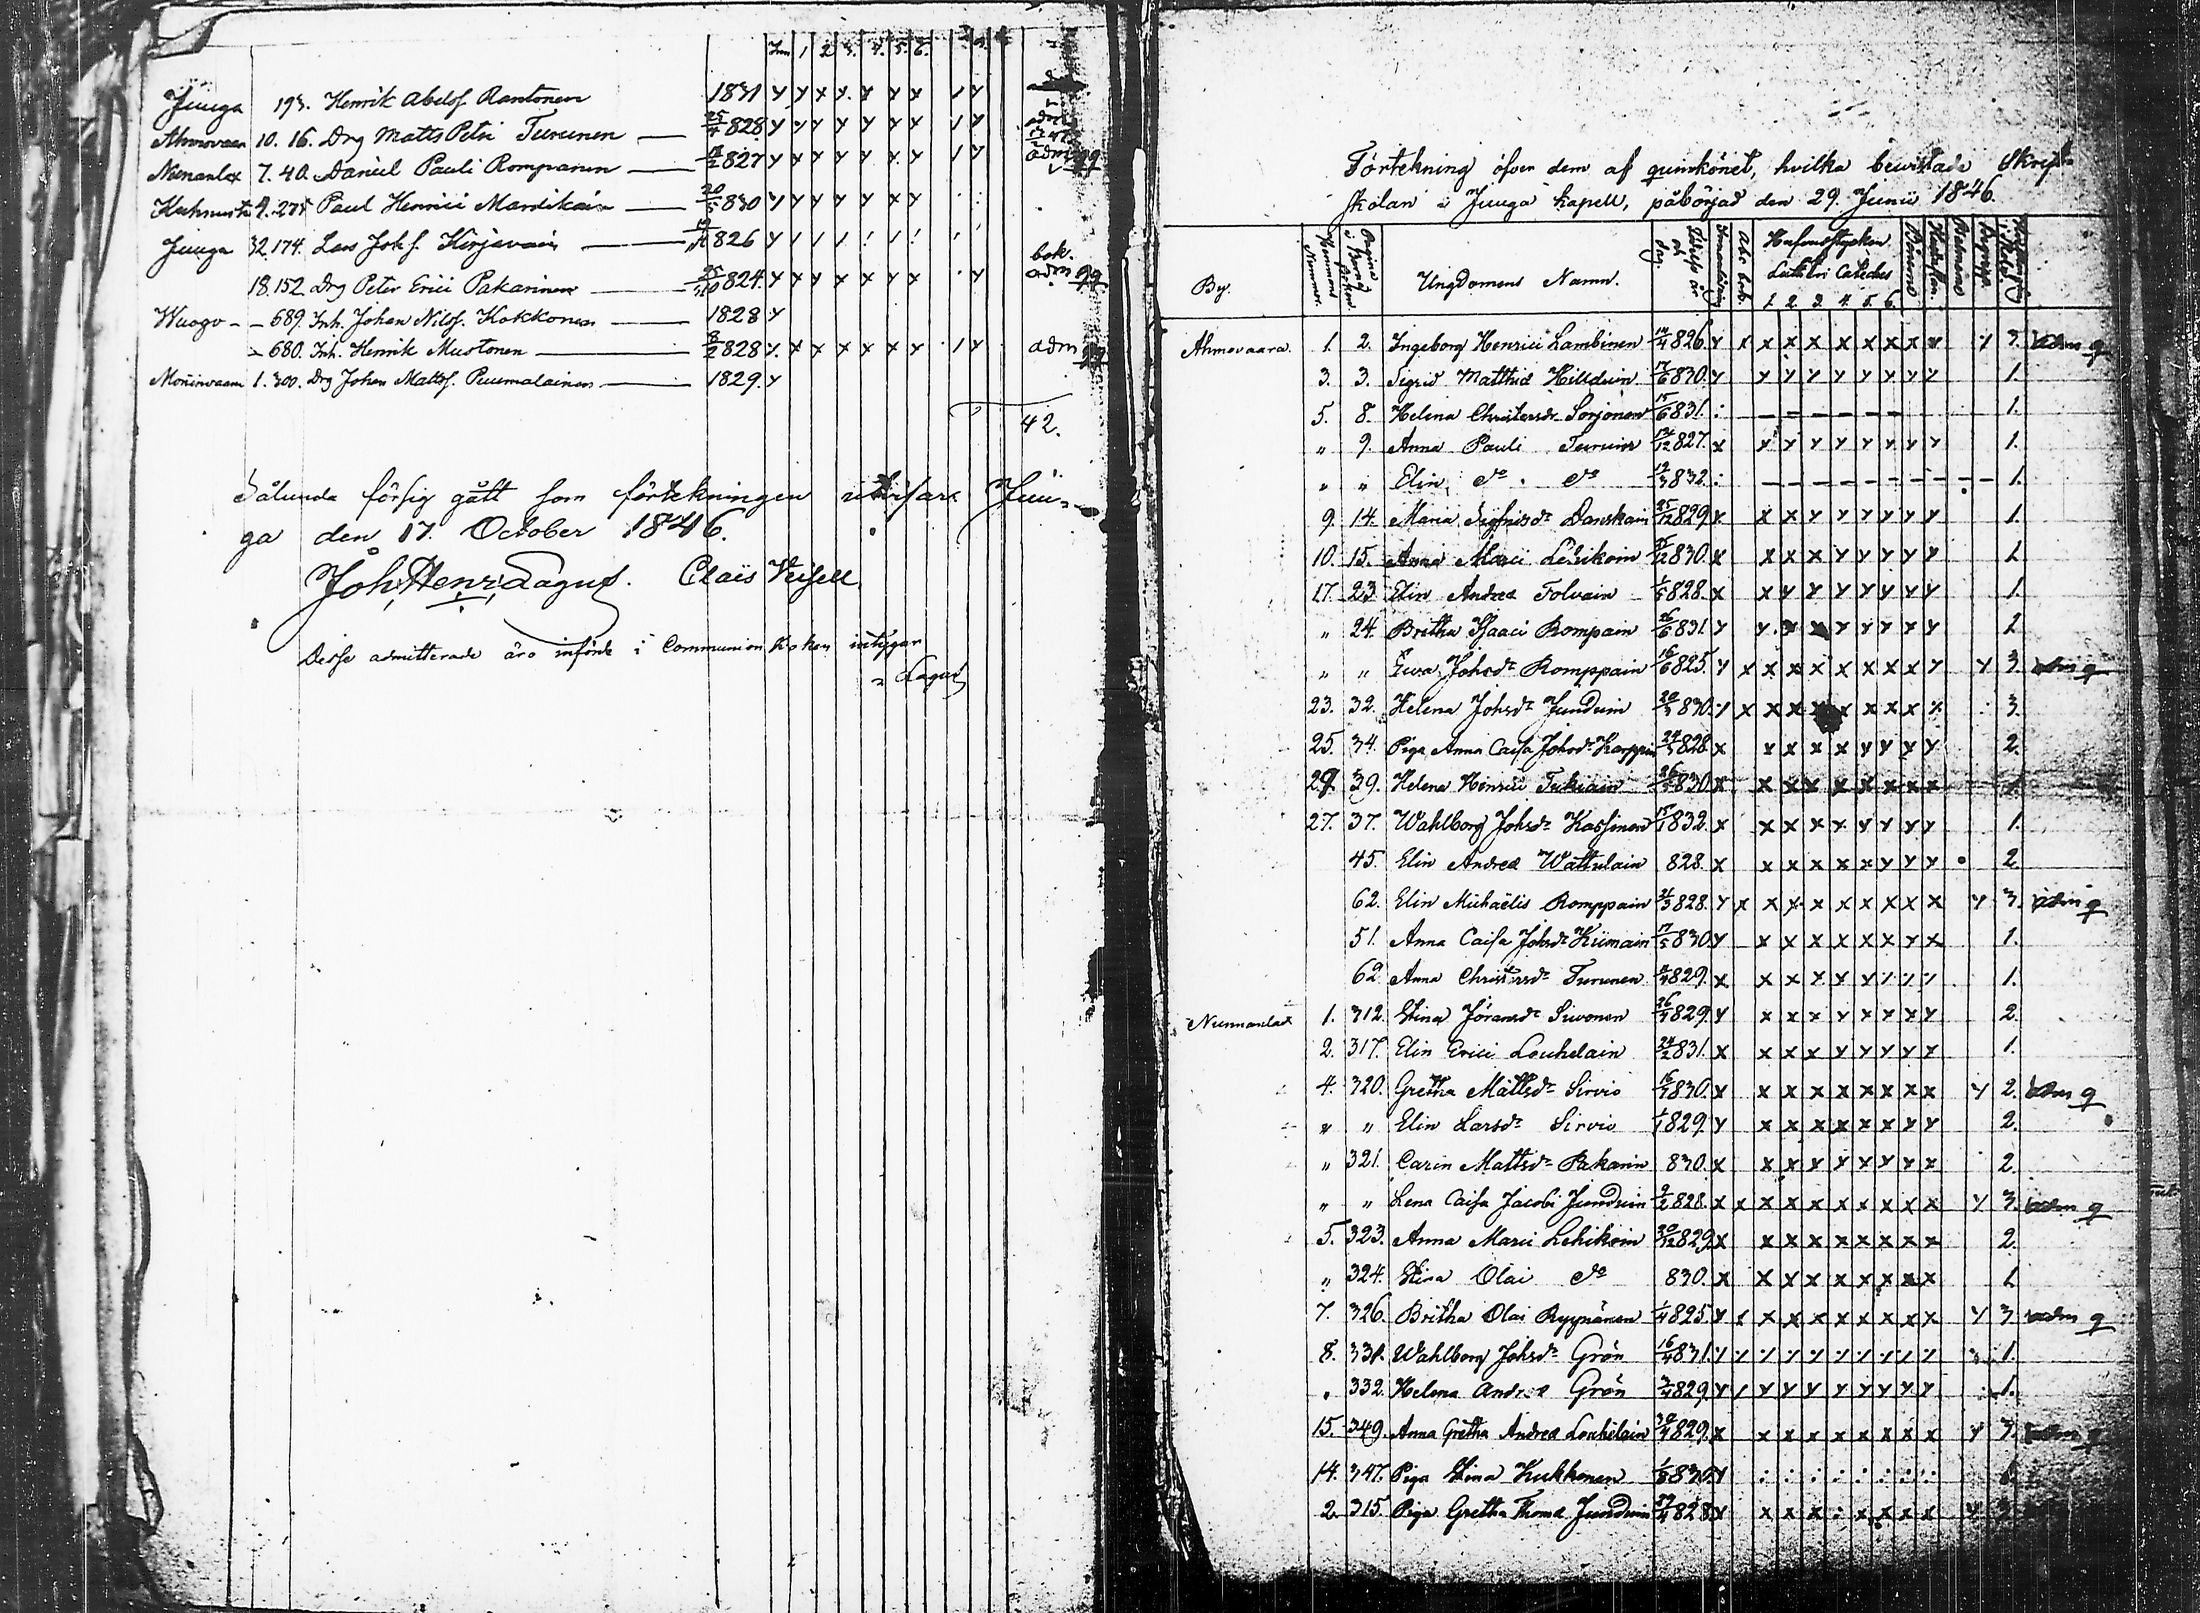 Inn 1 2 3. 4. 5. 6.
Juuga 193. Henrik Abelsf. Rantonen 1831 y y x y x y x / y
Ahmovaara 10. 16. Drg Matts Petri Turunen 25/4 828 y y y y y y y / y adm
Nunanlax 7. 40. Daniel Pauli Rompanen 827 y x y y y x y / y adm
9. 275 Paul Henrici Mardikain 20/5 830 y y y y y x y
Juuga 32. 174. Lars Johsf. Kirjavain 826 y / / / / /
18. 152. Drg Peter Erici Pakarinen 25/10 824. y x x y x y y y bok. adm
Wuogo - - 689. Inh. Johan Nilsf. Kokkonen 1828 y
- 680. Inh. Henrik Mustonen 8/2 828 y. x x x x x y / y adm
Moninvaara 1. 300. Drg Johan Mattsf. Puumalainen 1829. y
42.
Sålunda försig gått som förtekningen utvisar. Juu-
ga den 17. October 1846.
Joh. Henr. Lagus. Claës
Desse admitterade äro införde i Communion Boken intygar
Lagus
Förtekning öfver dem af qvinkönet, hvilka bewistade Skrift
skolan i Juuga kapell, påbörjad den 29. Junii 1846.
By. Hemmans Nummer. Pagina i Barna Boken Ungdomens Namn. Födelse år och dag. Innanläsning Abc bok. Hufvudstycken Lutheri Cateches 1. 2. 3. 4. 5. 6.
Ahmovaara. 1. 2. Ingeborg Henrici Lambinen 14/4 826. y x x x x x x x x x y 3. adm
3. 3. Sigrid Matthiæ Hilldein 17/6 830. y y y y y y y y y 1.
5. 8. Helena Christersdr Sorjonen 15/6 831. : - - - - - - 1.
" 9. Anna Pauli Turuin 827. x y y y y y y y y 1.
" " Elin do do 832. : - - - - - - - - 1.
9. 14. Maria Sigfridsdr Danskain 25/12 829. y x x y y y y y y 1.
10. 15. Anna Marci Lehikoin 830. x x x x y y y y y 1
17. 23. Elin Andreæ Tolvain 1/5 828. x x y y y y y y y 1.
" 24. Britha Isaaci Rompain 26/6 831. y y x x y y y y 1
" " Ewa Johsdr Romppain 16/6 825. y x x x x x x x x y y 3. adm
23. 32. Helena Johsdr Junduin 830. y x x x x x x x x 3.
25. 34. Piga Anna Caisa Johsdr Karppin 24/5 828 x x x x x y y y y 2.
29. 39. Helena Henrici Tukiain 26/5 830 x x x x x x x x x 1
27. 37. Wahlborg Johsdr Kassinen 832. x x x x x y y y y 1.
45. Elin Andreæ Wattulain 828. x x x x x x y y y 2
62. Elin Michaëlis Romppain 828. y x x x x x x x x x y 3. adm
51. Anna Caisa Johsdr Kiimain 17/5 830 y x x x x x x y x 1.
62 Anna Christersdr Turunen 829. x x x x y y 1.
Nunnanlax 1. 312. Stina Jöransdr Siwonen 26/4 829. y x x x x x x x y 2.
2. 317. Elin Erici Louhelain 24/2 831. x x x x y y y y y 1.
4. 320. Gretha Mattsdr Sirvio 830. x x x x x x x x x y 2. adm
" " Elin Larsdr Sirvio 829. y x x x x x x y y 2.
" 321. Carin Mattsdr Pakarin 830. x x x y y x y y x 2.
" " Lena Caisa Jacobi Junduin 9/2 828. x x x x x x x x x x y 3. adm
5. 323. Anna Marci Lehikoin 829 x x x x x x x x x 2.
" 324. Stina Olai do 830. x x x x x x x x x 1
7. 326. Britha Olai Ryynänen 1/4 825. y x x x x x x x x x y 3 adm
8. 331. Wahlborg Johsdr Grön 16/4 831. y y y y y y y y y y 1.
" 332. Helena Andreæ Grön 3/4 829. y / y y y y y y y y 1.
15. 349. Anna Gretha Andreæ Louhelain 829. x x x x x x x x x y 3.
14. 347. Piga Stina Kukkonen 830. y : : : : : : : :
2. 315. Piga Gretha Thomæ Junduin 828 y x x x : x x x x y